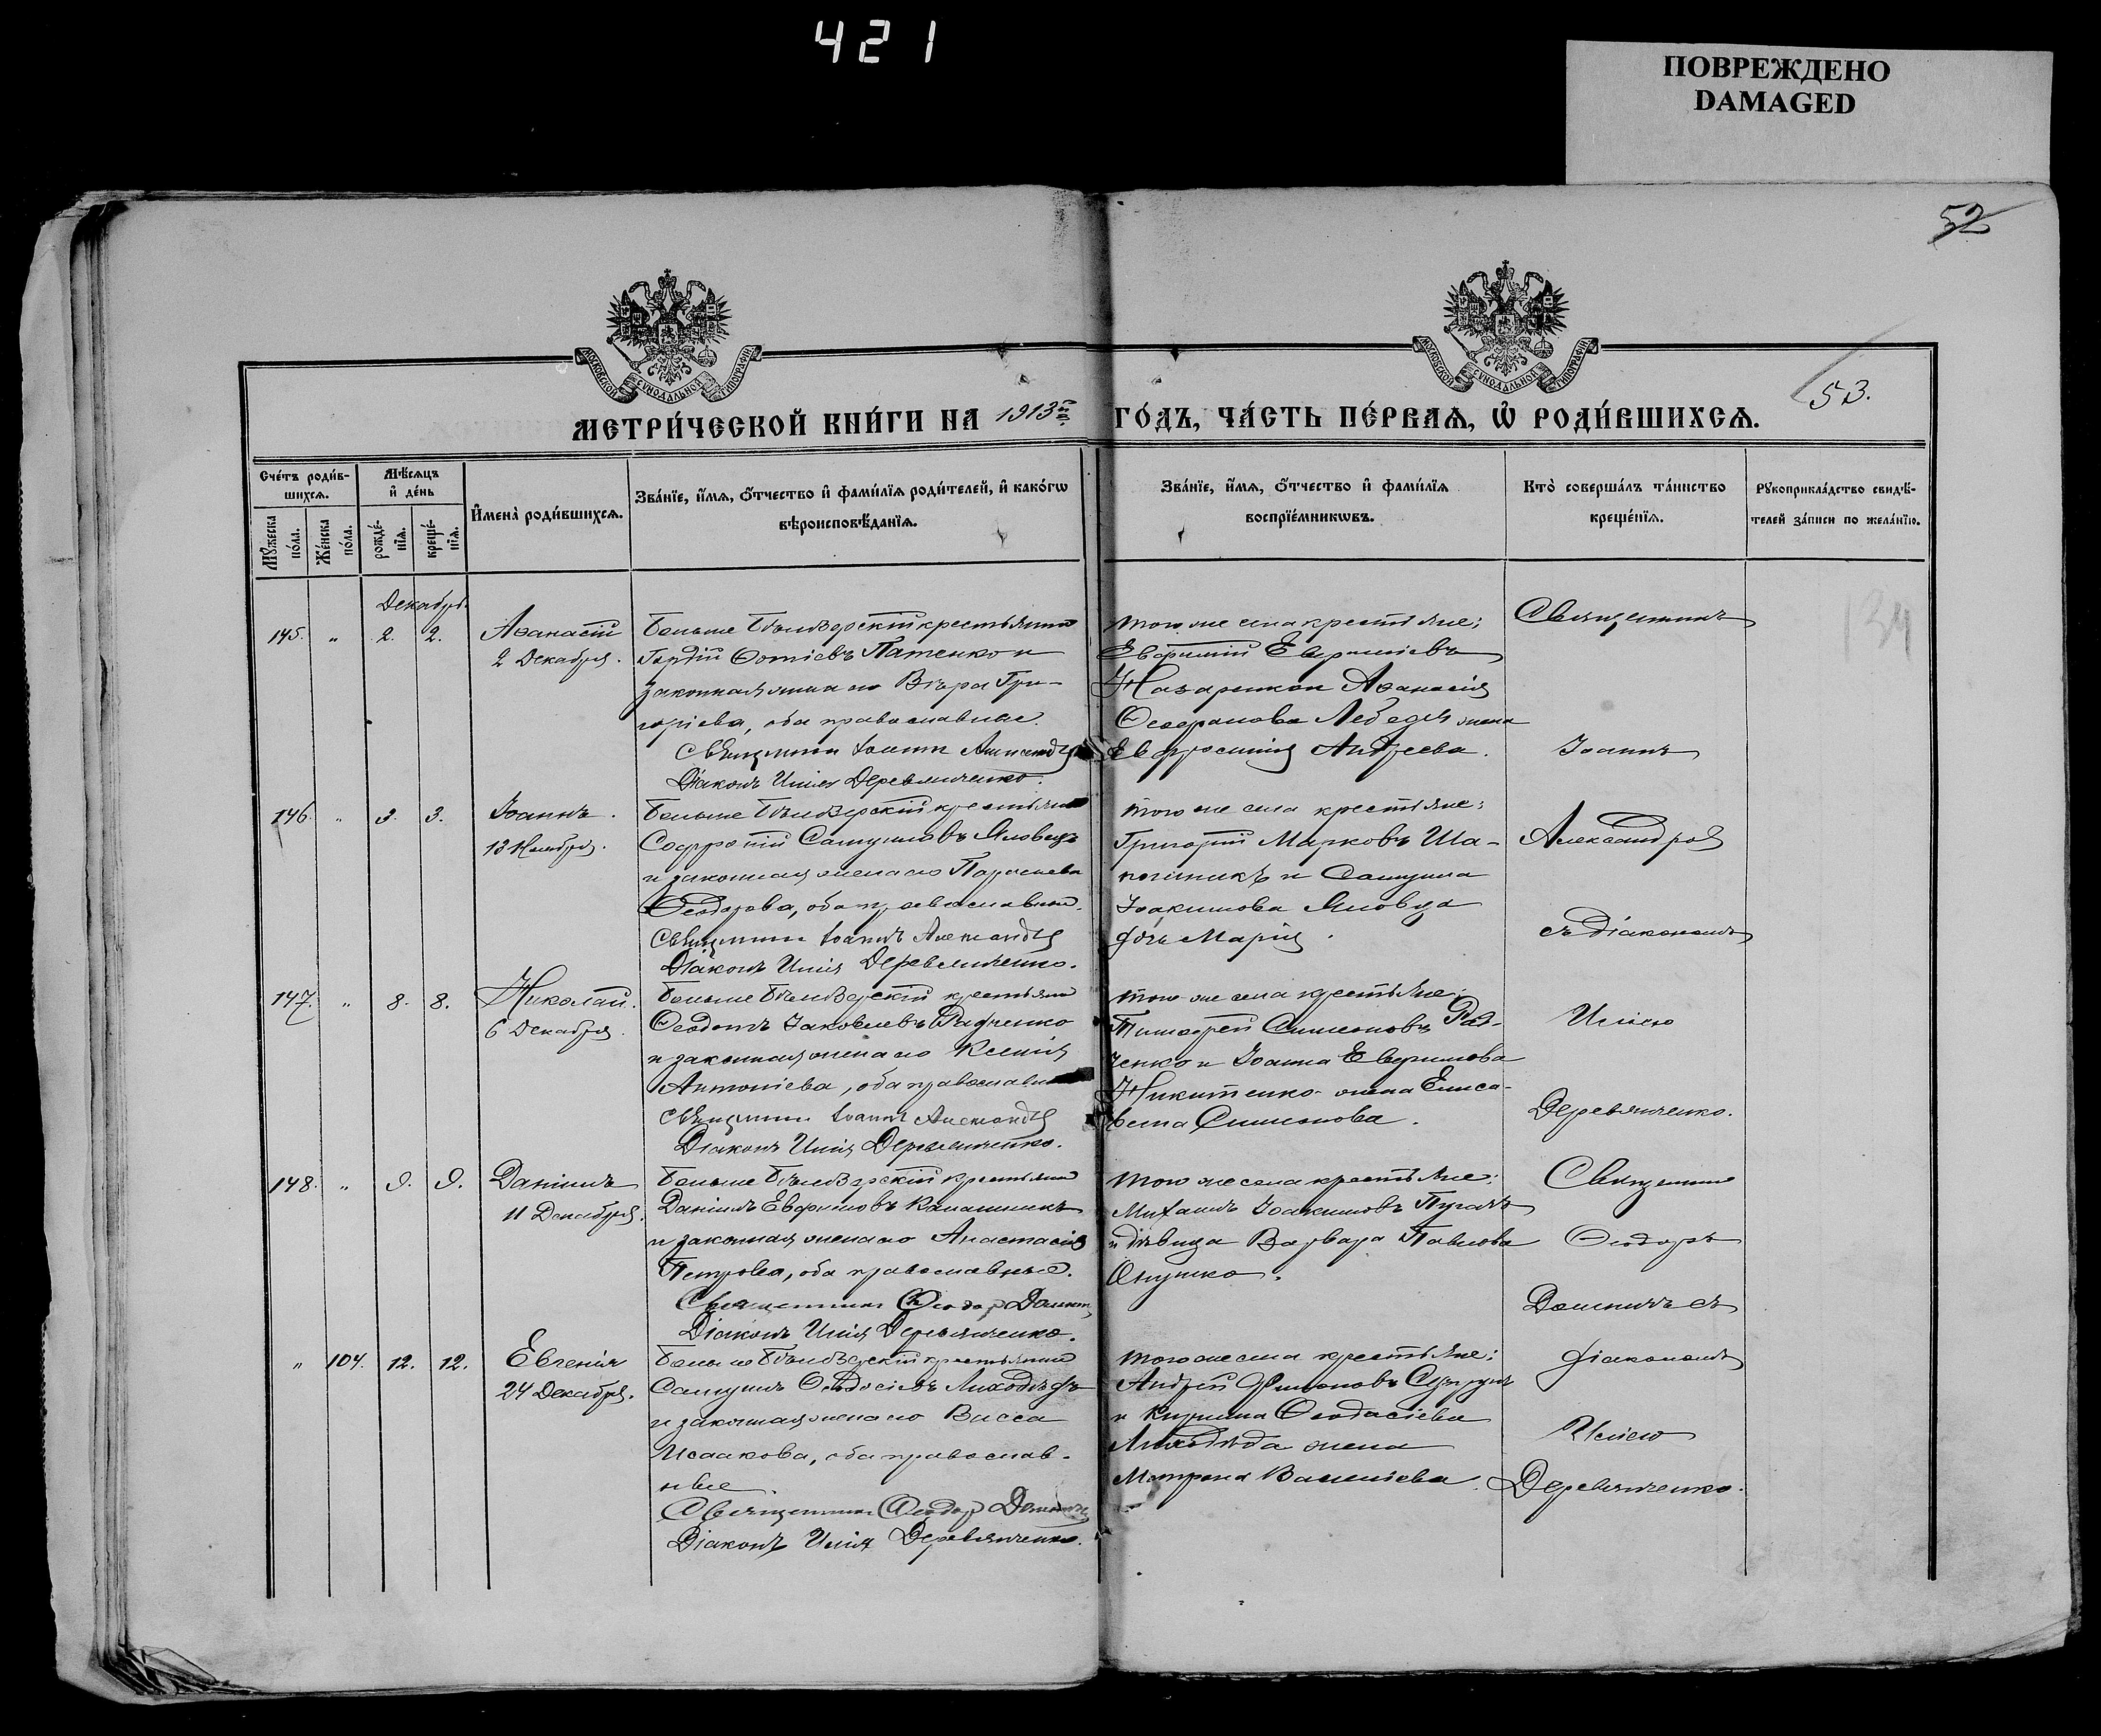 421
ПОВРЕЖДЕНО
DAMAGED
52
53.
МОСКОВСКОЙ СѴНОДАЛЬНОЙ ТИПОГРАФІИ
МОСКОВСКОЙ СѴНОДАЛЬНОЙ ТИПОГРАФІИ
МЕТРИ́ЧЕСКОЙ КНИ́ГИ НА 1913й ГО́ДЪ, ЧА́СТЬ ПЕ́РВАѦ, Ѡ҆ РОДИ́ВШИХСѦ.
Сче́тъ роди́в-
шихсѧ.
Мꙋ́жеска по́ла.
Же́нска по́ла.
Мѣ́сѧцъ
и҆ де́нь
рожде́-
нїѧ.
креще́-
нїѧ.
И҆мена̀ роди́вшихсѧ.
Зва́нїе, и҆́мѧ, ѻ҆́тчество и҆ фами́лїѧ роди́телей, и҆ како́гѡ
вѣроисповѣ́данїѧ.
Зва́нїе, и҆́мѧ, ѻ҆́тчество и҆ фами́лїѧ
воспрїе́мникѡвъ.
Кто̀ соверша́лъ та́инство
креще́нїѧ.
Рꙋкоприкла́дство свидѣ́-
телей за́писи по жела́нїю.
134
Декабрь
145. " 2. 2. Аѳанасій
2 Декабря.
Больше Бѣлозерскій крестьянинъ
Гордій Фотіевъ Патенко и
законная жена его Вѣра Гри-
горіева, оба православные.
Священникъ Іоаннъ Александровъ
Діаконъ Илія Деревянченко.
того же села крестьяне:
Евфимій Евфиміевъ
Назаренко и Аѳанасія
Лебедя жена
Евфросинія Андреева.
Священникъ
Іоаннъ
146. " 3. 3. Іоаннъ.
13 Ноября.
Больше Бѣлозерскій крестьянинъ
Софроній Самуиловъ Яловецъ
и законная жена его Параскева
Ѳеодорова, оба православные.
Священникъ Іоаннъ Александровъ
Діаконъ Илія Деревянченко.
того же села крестьяне:
Григорій Марковъ Ша-
и Самуила
Іоакимова Яловца
дочь Марія.
Александровъ
съ діакономъ
147. " 8. 8. Николай.
6 Декабря.
Больше Бѣлозерскій крестьянинъ
Ѳеодотъ Іаковлевъ Радченко
и законная жена его Ксенія
Антоніева, оба православные
Священникъ Іоаннъ Александровъ
Діаконъ Илія Деревянченко.
того же села крестьяне:
Тимофей Симеоновъ Рад-
ченко и Іоанна Евфимова
Никитенко жена Елиса-
вета Симеонова.
Иліею
Деревянченко.
148. " 9. 9. Даніилъ
11 Декабря.
Больше Бѣлозерскій крестьянинъ
Даніилъ Евфимовъ Калашникъ
и законная жена его Анастасія
Петрова, оба православные.
Священникъ Ѳеодоръ
Діаконъ Илія Деревянченко.
того же села крестьяне:
Михаилъ Іоакимовъ Пугачъ
и дѣвица Варвара Павлова
Священникъ
Ѳеодоръ
съ
" 104. 12. 12. Евгенія
24 Декабря.
Больше Бѣлозерскій крестьянинъ
Самуилъ Ѳеодосіевъ Лиходѣдъ
и законная жена его Васса
Исаакова, оба православ-
ные.
Священникъ Ѳеодоръ
Діаконъ Илія Деревянченко.
того же села крестьяне:
Андрей Филимоновъ
и Кирилла Ѳеодосіева
Лиходѣда жена
Матрона Василіева.
діакономъ
Иліею
Деревянченко.